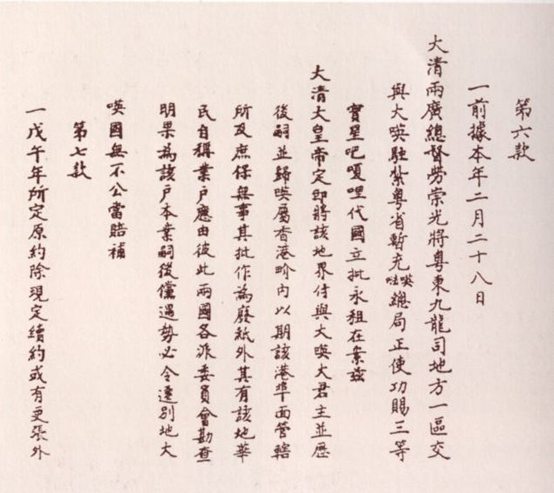 第六款
一前據本年二月二十八日
大清兩廣總督勞崇光將粵東九龍司地方一區交
與大𠸄駐紮粵省暫充𠸄㖀總局正使功賜三等
寶星吧嗄哩代國立批永租在案茲
大清大皇帝定即將該地界付與大𠸄大君主並歷
後嗣並歸𠸄屬香港界內以期該港埠面管轄
所及庶保無事其批作為廢紙外其有該地華
民自稱業戶應由彼此兩國各派委員會勘查
明果為該戶本業嗣後儻遇勢必令遷別地大
𠸄國無不公當賠補
第七款
一戊午年所定原約除現定續約或有更張外